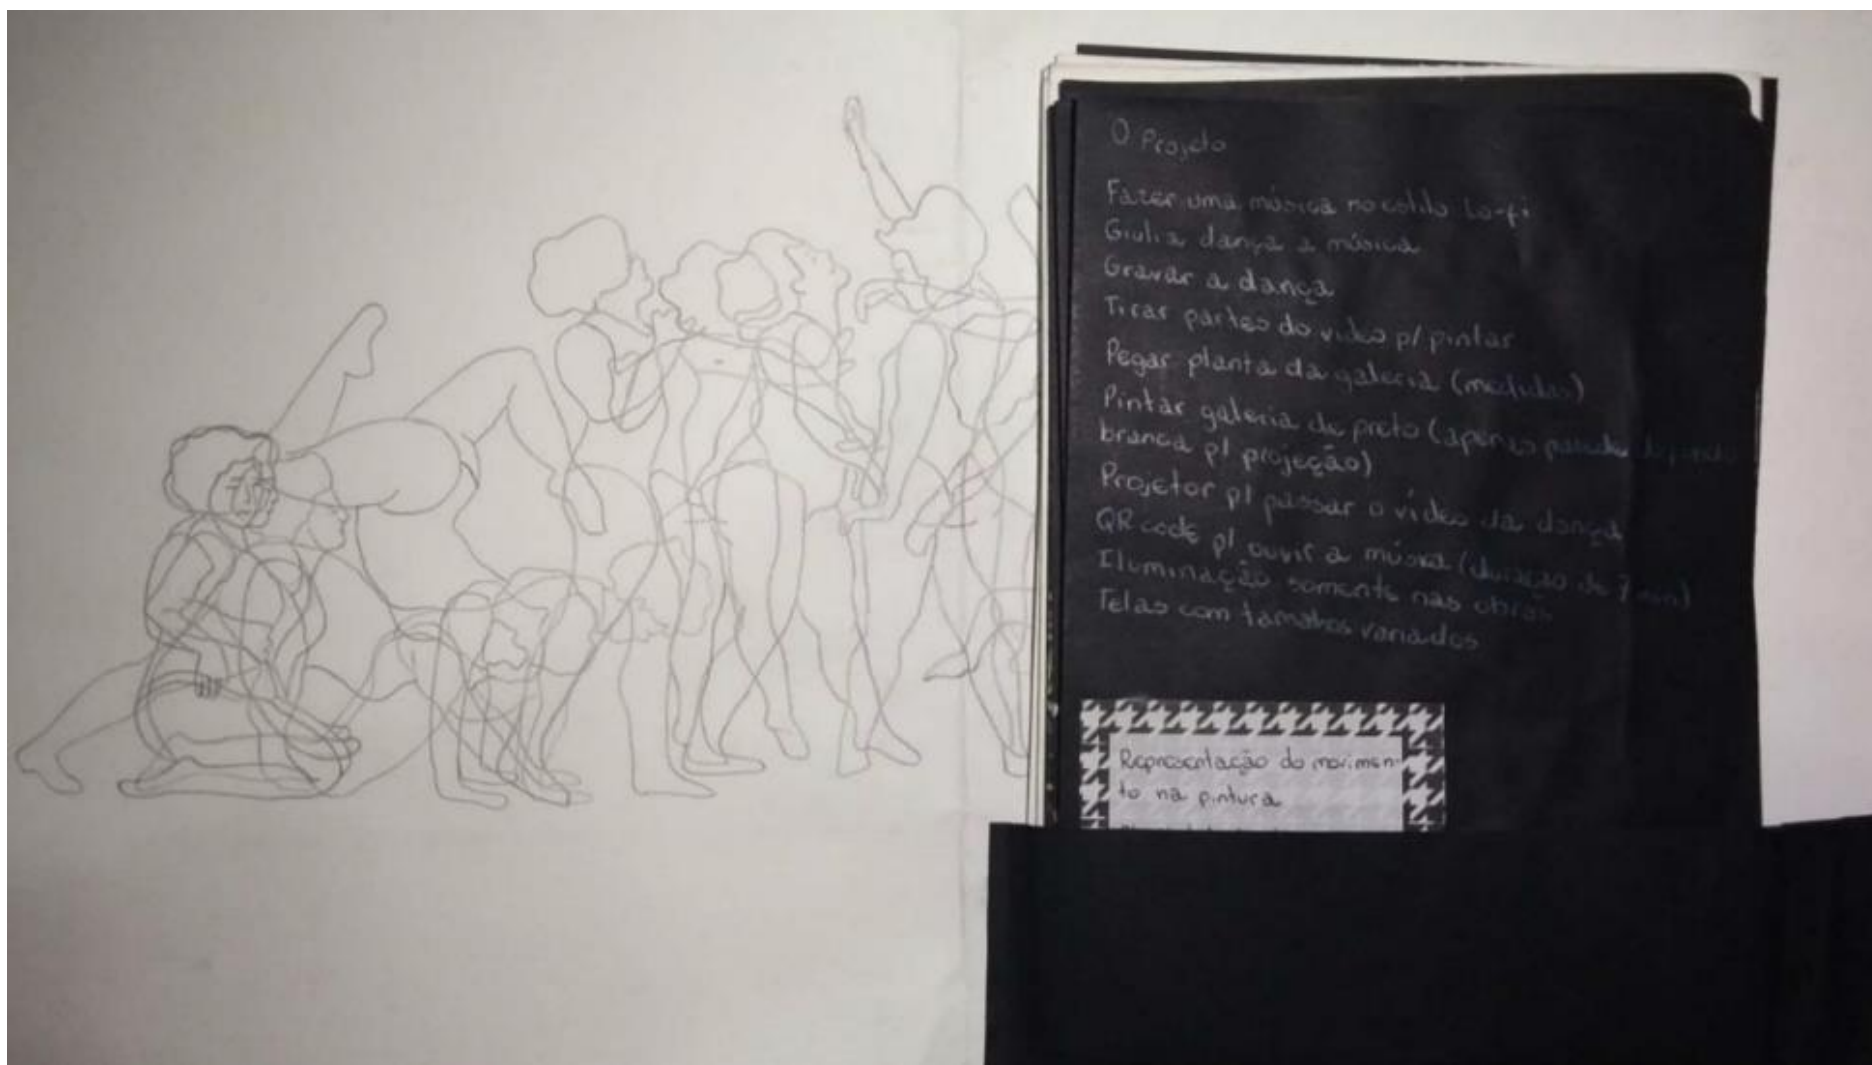 O Projeto
Fazer uma música no estilo Lo-fi
Giulia dança a música
Gravar a dança
Tirar partes do video p/ pintar
Pegar planta da galeria (medidas)
Pintar galeria de preto (apenas parede
branca p/ projeção)
Projetor p/ passar o vídeo da dança
QR code p/ ouvir a música (duração de 7 min)
Iluminação somente nas obras
Telas com tamanhos variados
Representação do movimen-
to na pintura